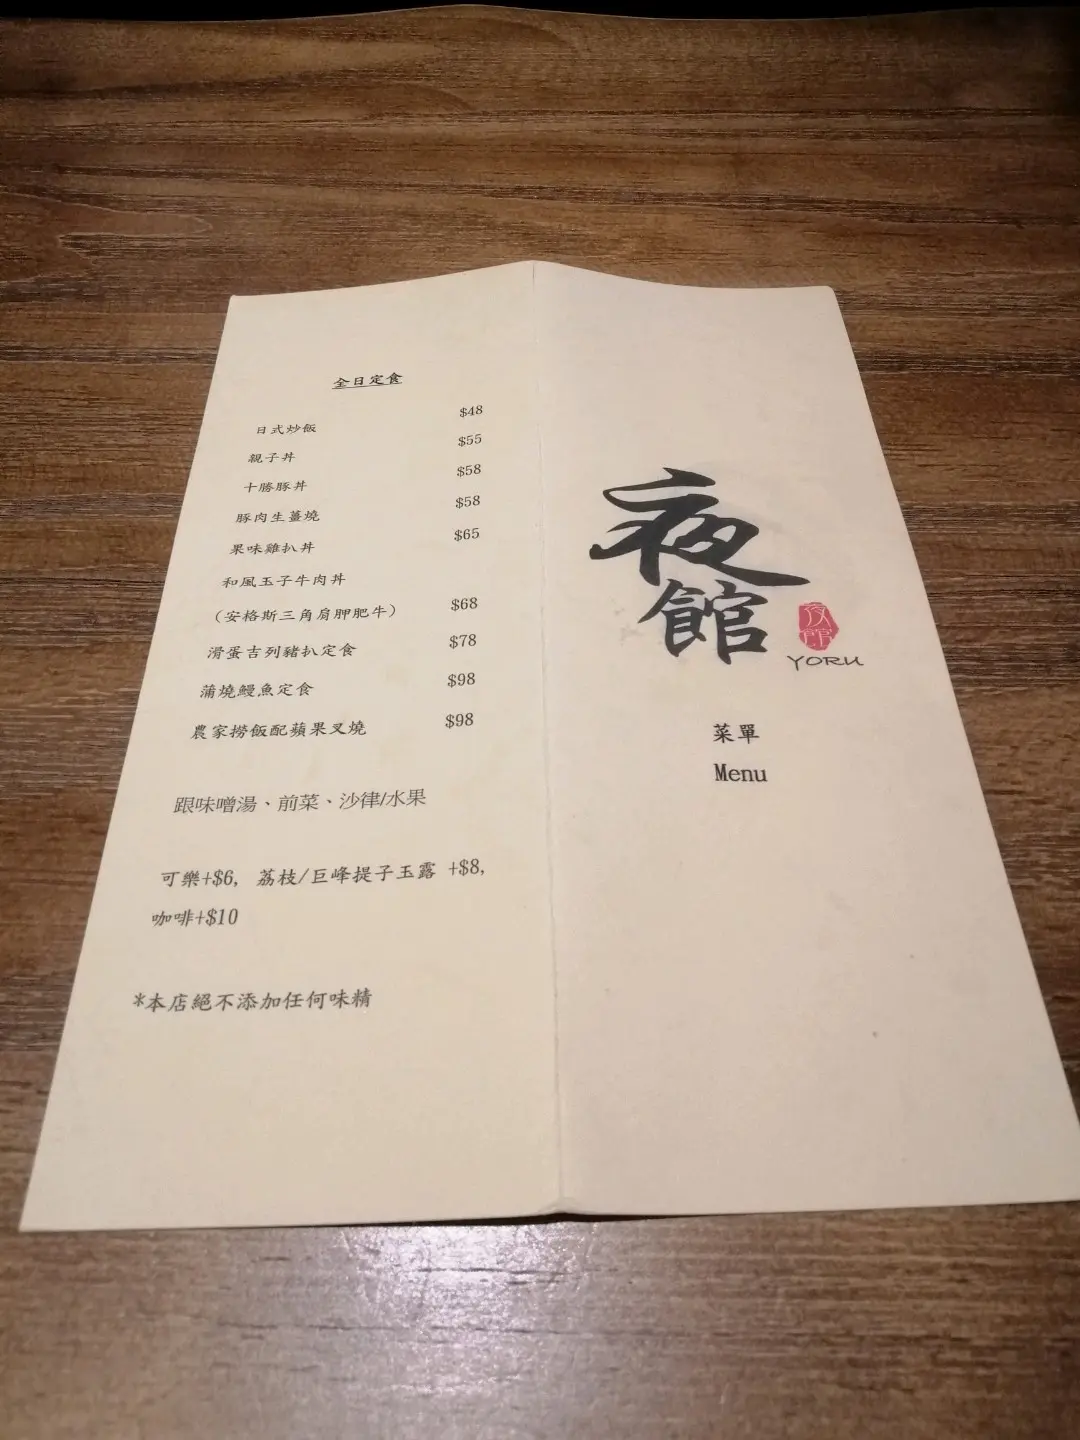 全日定食
日式炒飯 $48
親子丼 $55
十勝豚丼 $58
豚肉生薑燒 $58
果味雞扒丼 $65
和風玉子牛肉丼
(安格斯三角肩胛肥牛) $68
滑蛋吉列豬扒定食 $78
蒲燒鰻魚定食 $98
農家撈飯配蘋果叉燒 $98
跟味噌湯、前菜、沙律/水果
可樂+$6, 荔枝/巨峰提子玉露 +$8,
咖啡+$10
*本店絕不添加任何味精
夜
館
夜館
YORU
菜單
Menu